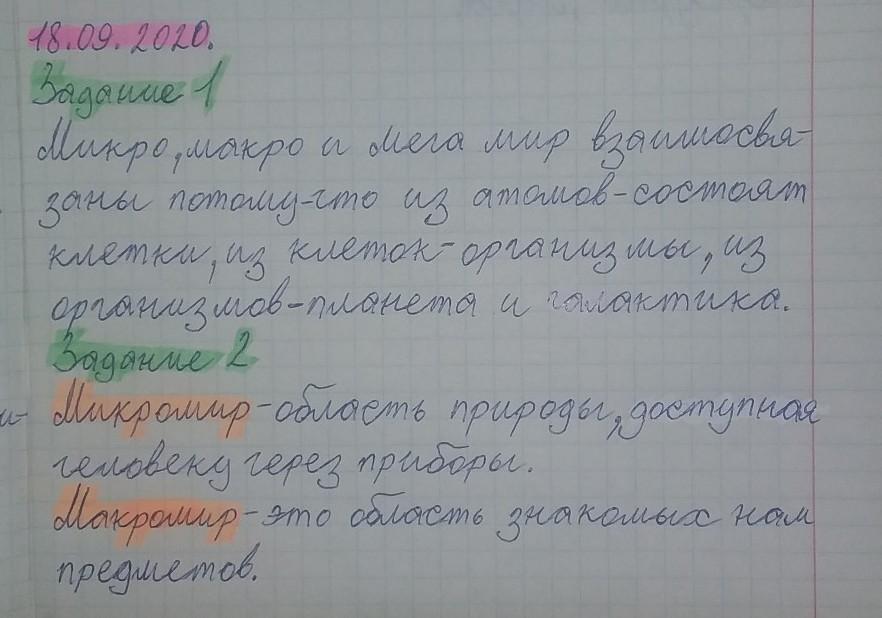 18.09.2020.
Задание 1
Микро, макро и мега мир взаимосвя-
заны потому-что из атомов-состоят
клетки, из клеток-организмы, из
организмов-планета и галактика.
Задание 2
Микромир-область природы, доступная
человеку через приборы.
Макромир-это область знакомых нам
предметов.